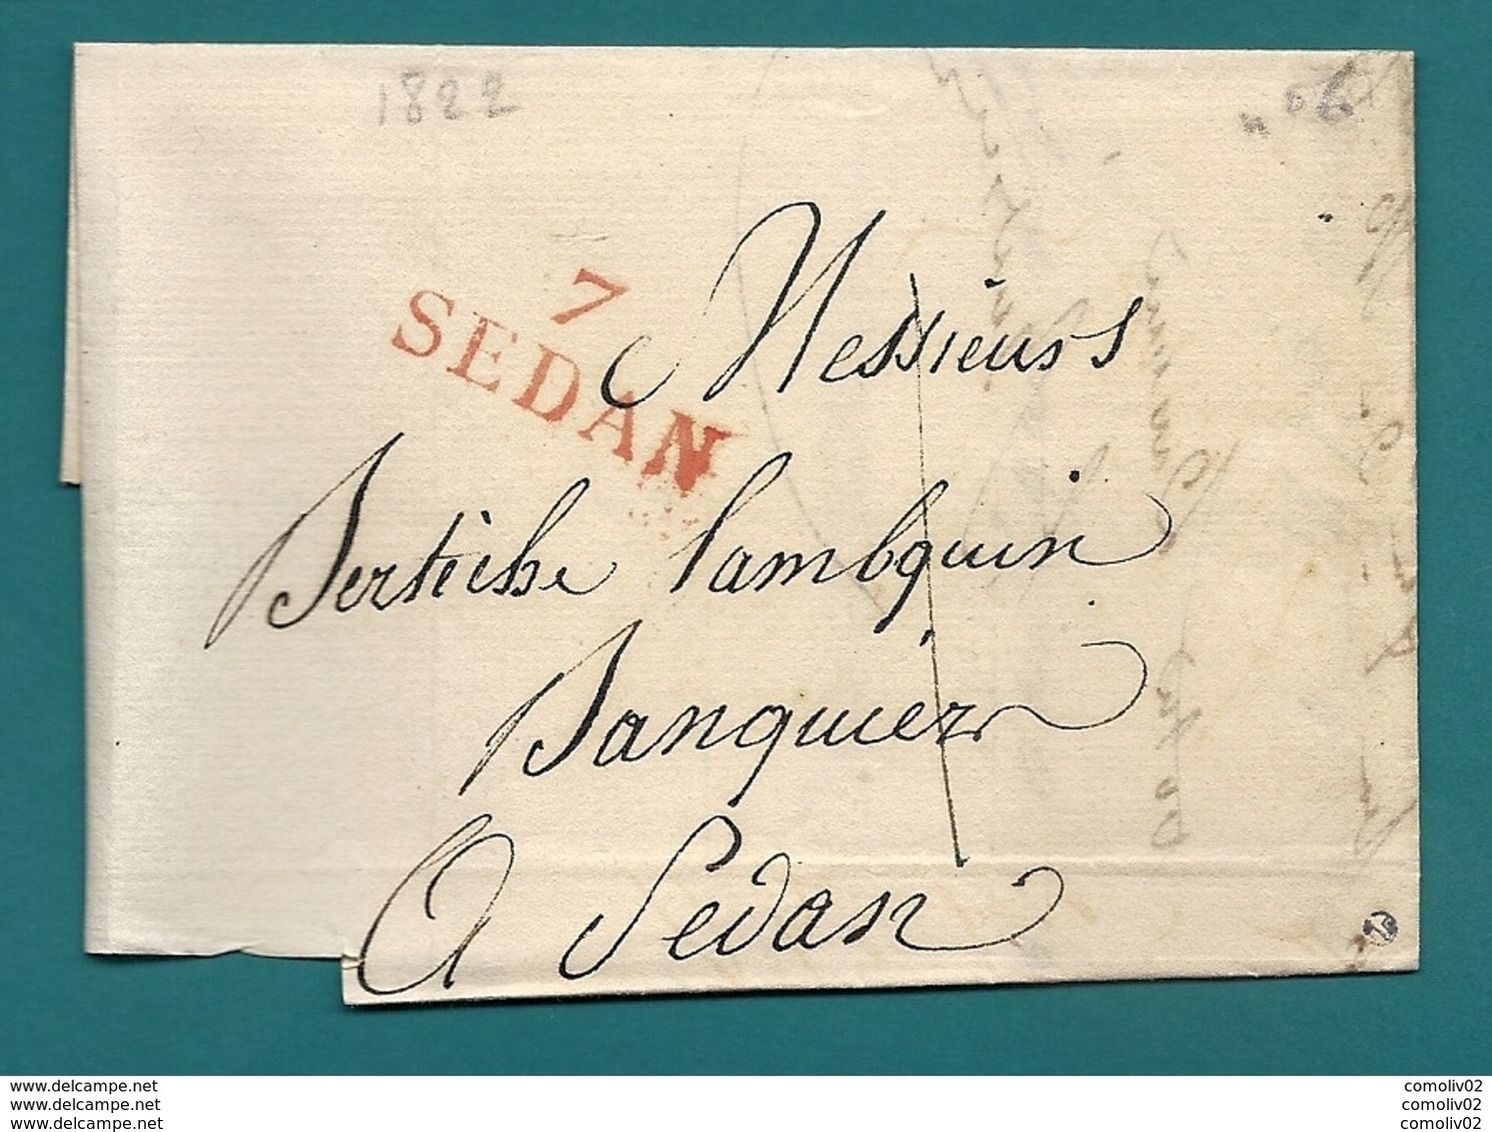 1822
7
SEDAN
Messieurs
Berteche Lambquin
Banquier
A Sedan
www.delcampe.net
www.delcampe.net
www.delcampe.net
comoliv02
comoliv02
comoliv02